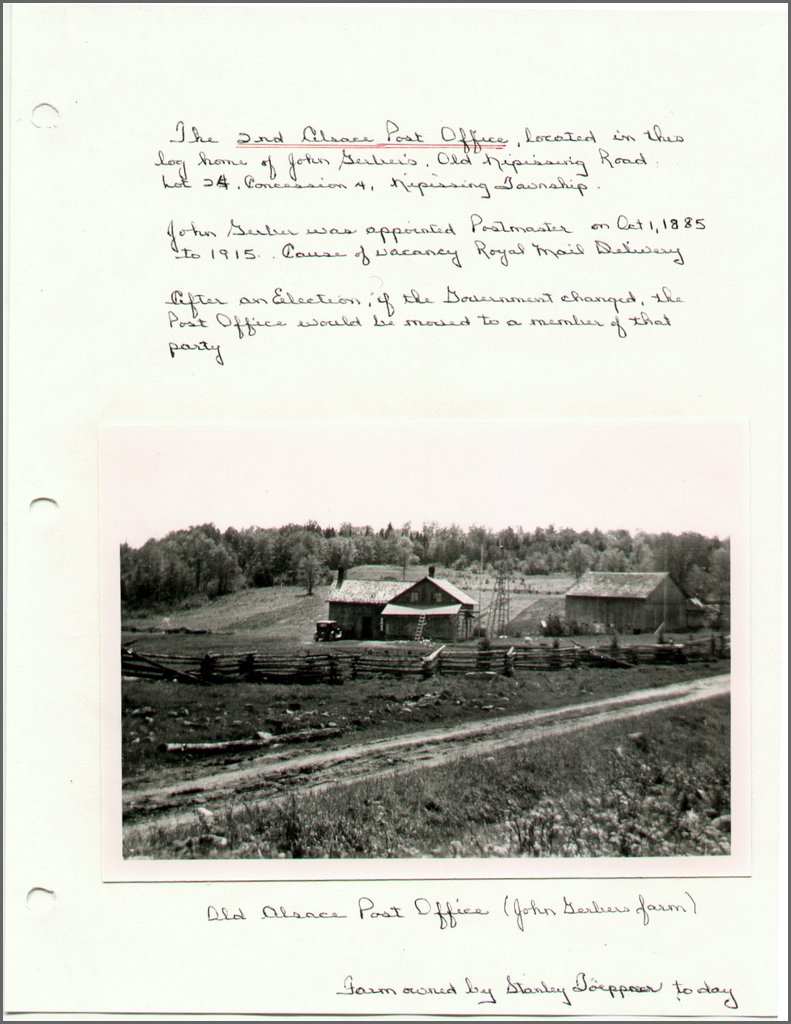 The 2nd Alsace Post Office, located in this
log home of John Gerber's, Old Nipissing Road.
Lot 24, Concession 4, Nipissing Township.
John Gerber was appointed Postmaster on Oct 1, 1885
to 1915. Cause of vacancy Royal Mail Delivery
After an Election, if the Government changed, the
Post Office would be moved to a member of that
party
Old Alsace Post Office (John Gerbers farm)
Farm owned by Stanley Toeppner today